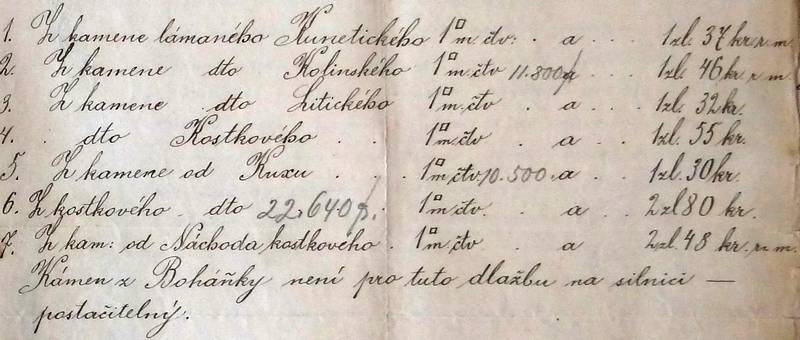 1. Z kamene lámaného Kunetického 1□m. čtv: . a . . . 1 zl. 37 kr. r. m.
2. Z kamene dto Kolinského 1□m. čtv 11.800 . . . 1 zl. 46 kr. r. m.
3. Z kamene dto Litického 1□m. čtv . a . . . 1 zl. 32 kr.
4. . dto Kostkového . . 1□m. čtv . a . . 1 zl. 55 kr.
5. Z kamene od Kuxu . . . 1□m. čtv. 10.500. a . . 1 zl. 30 kr.
6. Z kostkového . dto 22.640 1□m. čtv. . a . . 2 zl 80 kr.
7. Z kam: od Náchoda kostkového . 1□m. čtv . a 2 zl. 48 kr. r. m.
Kámen z Boháňky není pro tuto dlažbu na silnici —
postačitelný.